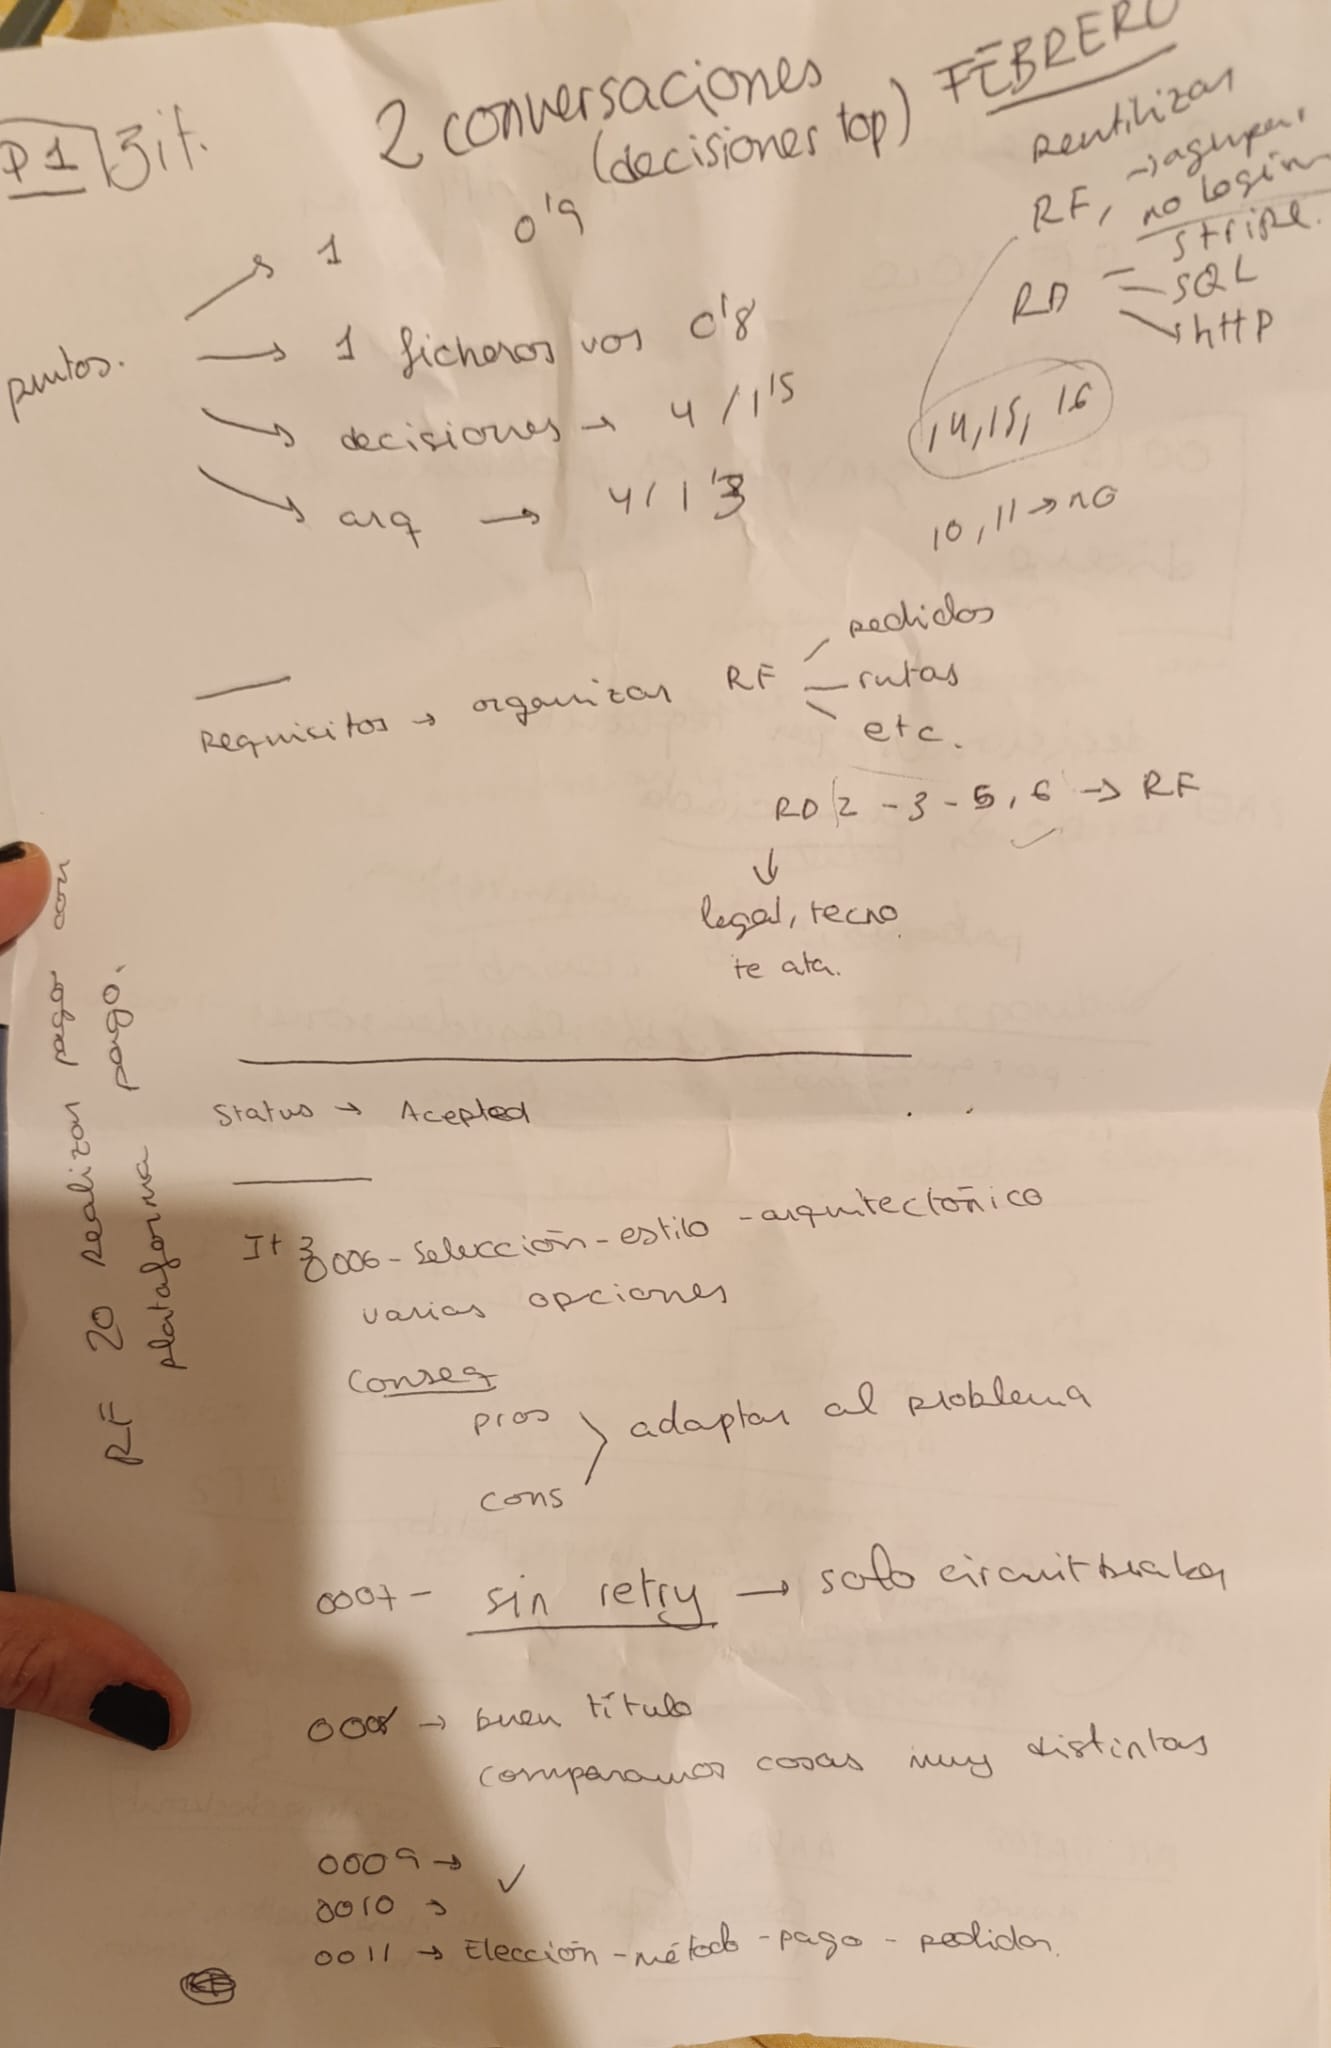 P1 3it.
2 conversaciones
(decisiones top)
FEBRERO
reutilizar
RF, → agrupar,
no login
stripe.
RD = SQL
→ http
14, 15, 16
10, 11 → no
puntos.
→ 1 0'9
→ 1 ficheros vos 0'8
→ decisiones → 4 / 1'5
→ arq → 4 / 1'3
Requisitos → organizar RF
pedidos
rutas
etc.
RD 2 - 3 - 5, 6 → RF
↓
legal, tecno.
te ata.
RF 20 Realizar pagos con
plataforma pago.
Status → Acepted
It 3
0006 - Selección - estilo - arquitectónico
varias opciones
Conseq
pros
cons
adaptar al problema
0007 - sin retry → solo circuit breaker
0008 → buen título
comparamos cosas muy distintas
0009 → ✓
0010 →
0011 → Elección - método - pago - pedidos.